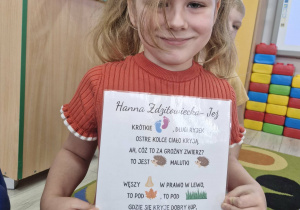 Hanna Zdzitowiecka - Jeż
KRÓTKIE , DŁUGI RYJEK
OSTRE KOLCE CIAŁO KRYJĄ.
AH, CÓŻ TO ZA GROŹNY ZWIERZ?
TO JEST MALUTKI
WĘSZY W PRAWO W LEWO,
TO POD , TO POD
GDZIE SIĘ KRYJE DOBRY ŁUP,